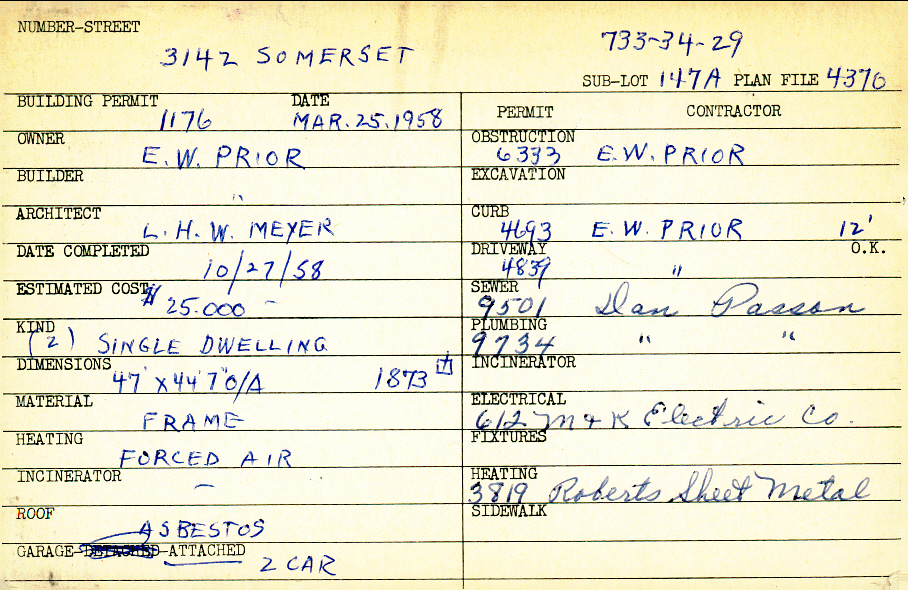 NUMBER-STREET
3142 SOMERSET
733-34-29
SUB-LOT 147A PLAN FILE 4370
BUILDING PERMIT DATE
1176 MAR. 25. 1958
PERMIT CONTRACTOR
OWNER
E. W. PRIOR
OBSTRUCTION
6333 E. W. PRIOR
BUILDER
"
EXCAVATION
ARCHITECT
L. H. W. MEYER
CURB
4693 E. W. PRIOR 12'
DATE COMPLETED
10/27/58
DRIVEWAY O.K.
4839 "
ESTIMATED COST
$25.000 -
SEWER
9501 Dan Passon
KIND
(2) SINGLE DWELLING
PLUMBING
9734 " "
DIMENSIONS
47' X 44' 7" O/A 1873
INCINERATOR
MATERIAL
FRAME
ELECTRICAL
612 M & K Electric Co.
HEATING
FORCED AIR
FIXTURES
INCINERATOR
-
HEATING
3819 Roberts Sheet Metal
ROOF
ASBESTOS
SIDEWALK
GARAGE-DETACHED-ATTACHED
2 CAR